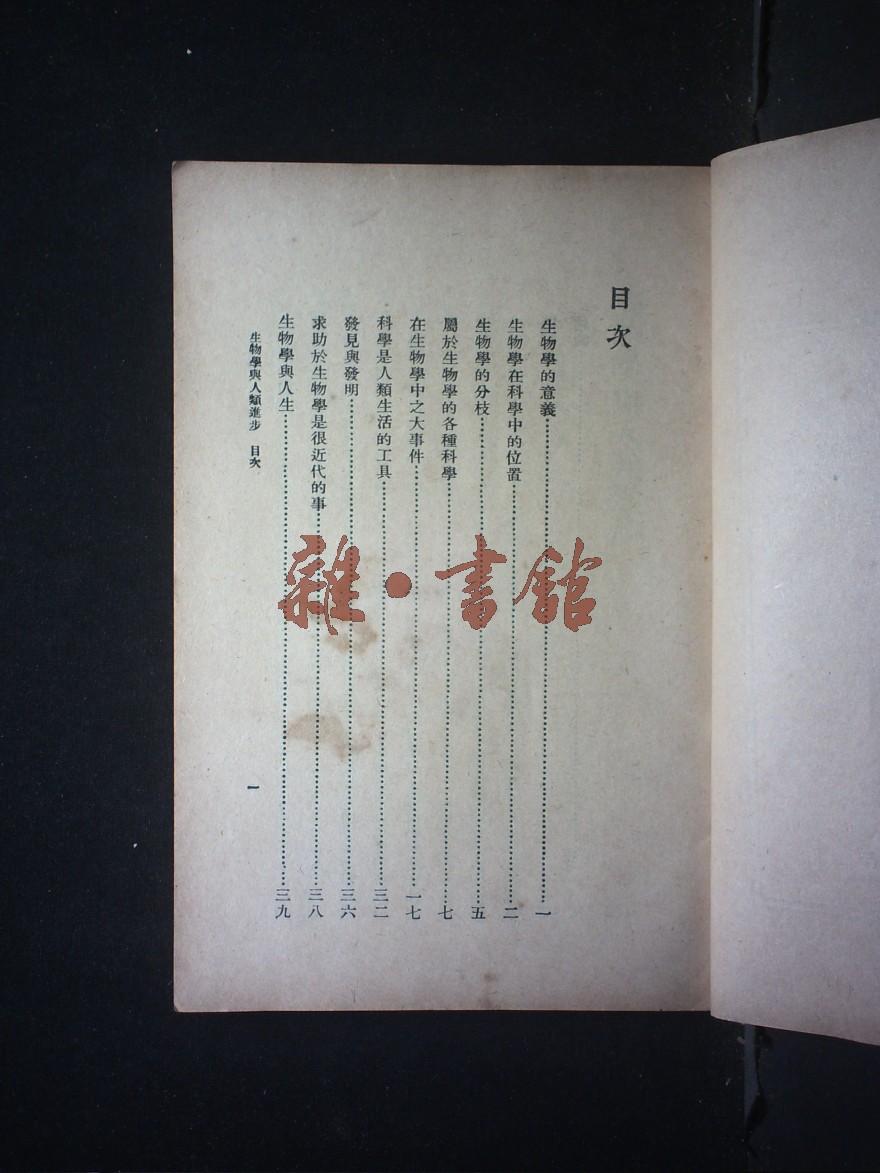 目次
生物學的意義……一
生物學在科學中的位置……二
生物學的分枝……五
屬於生物學的各種科學……七
在生物學中之大事件……一七
科學是人類生活的工具……三二
發見與發明……三六
求助於生物學是很近代的事……三八
生物學與人生……三九
生物學與人類進步 目次
一
雜·書館